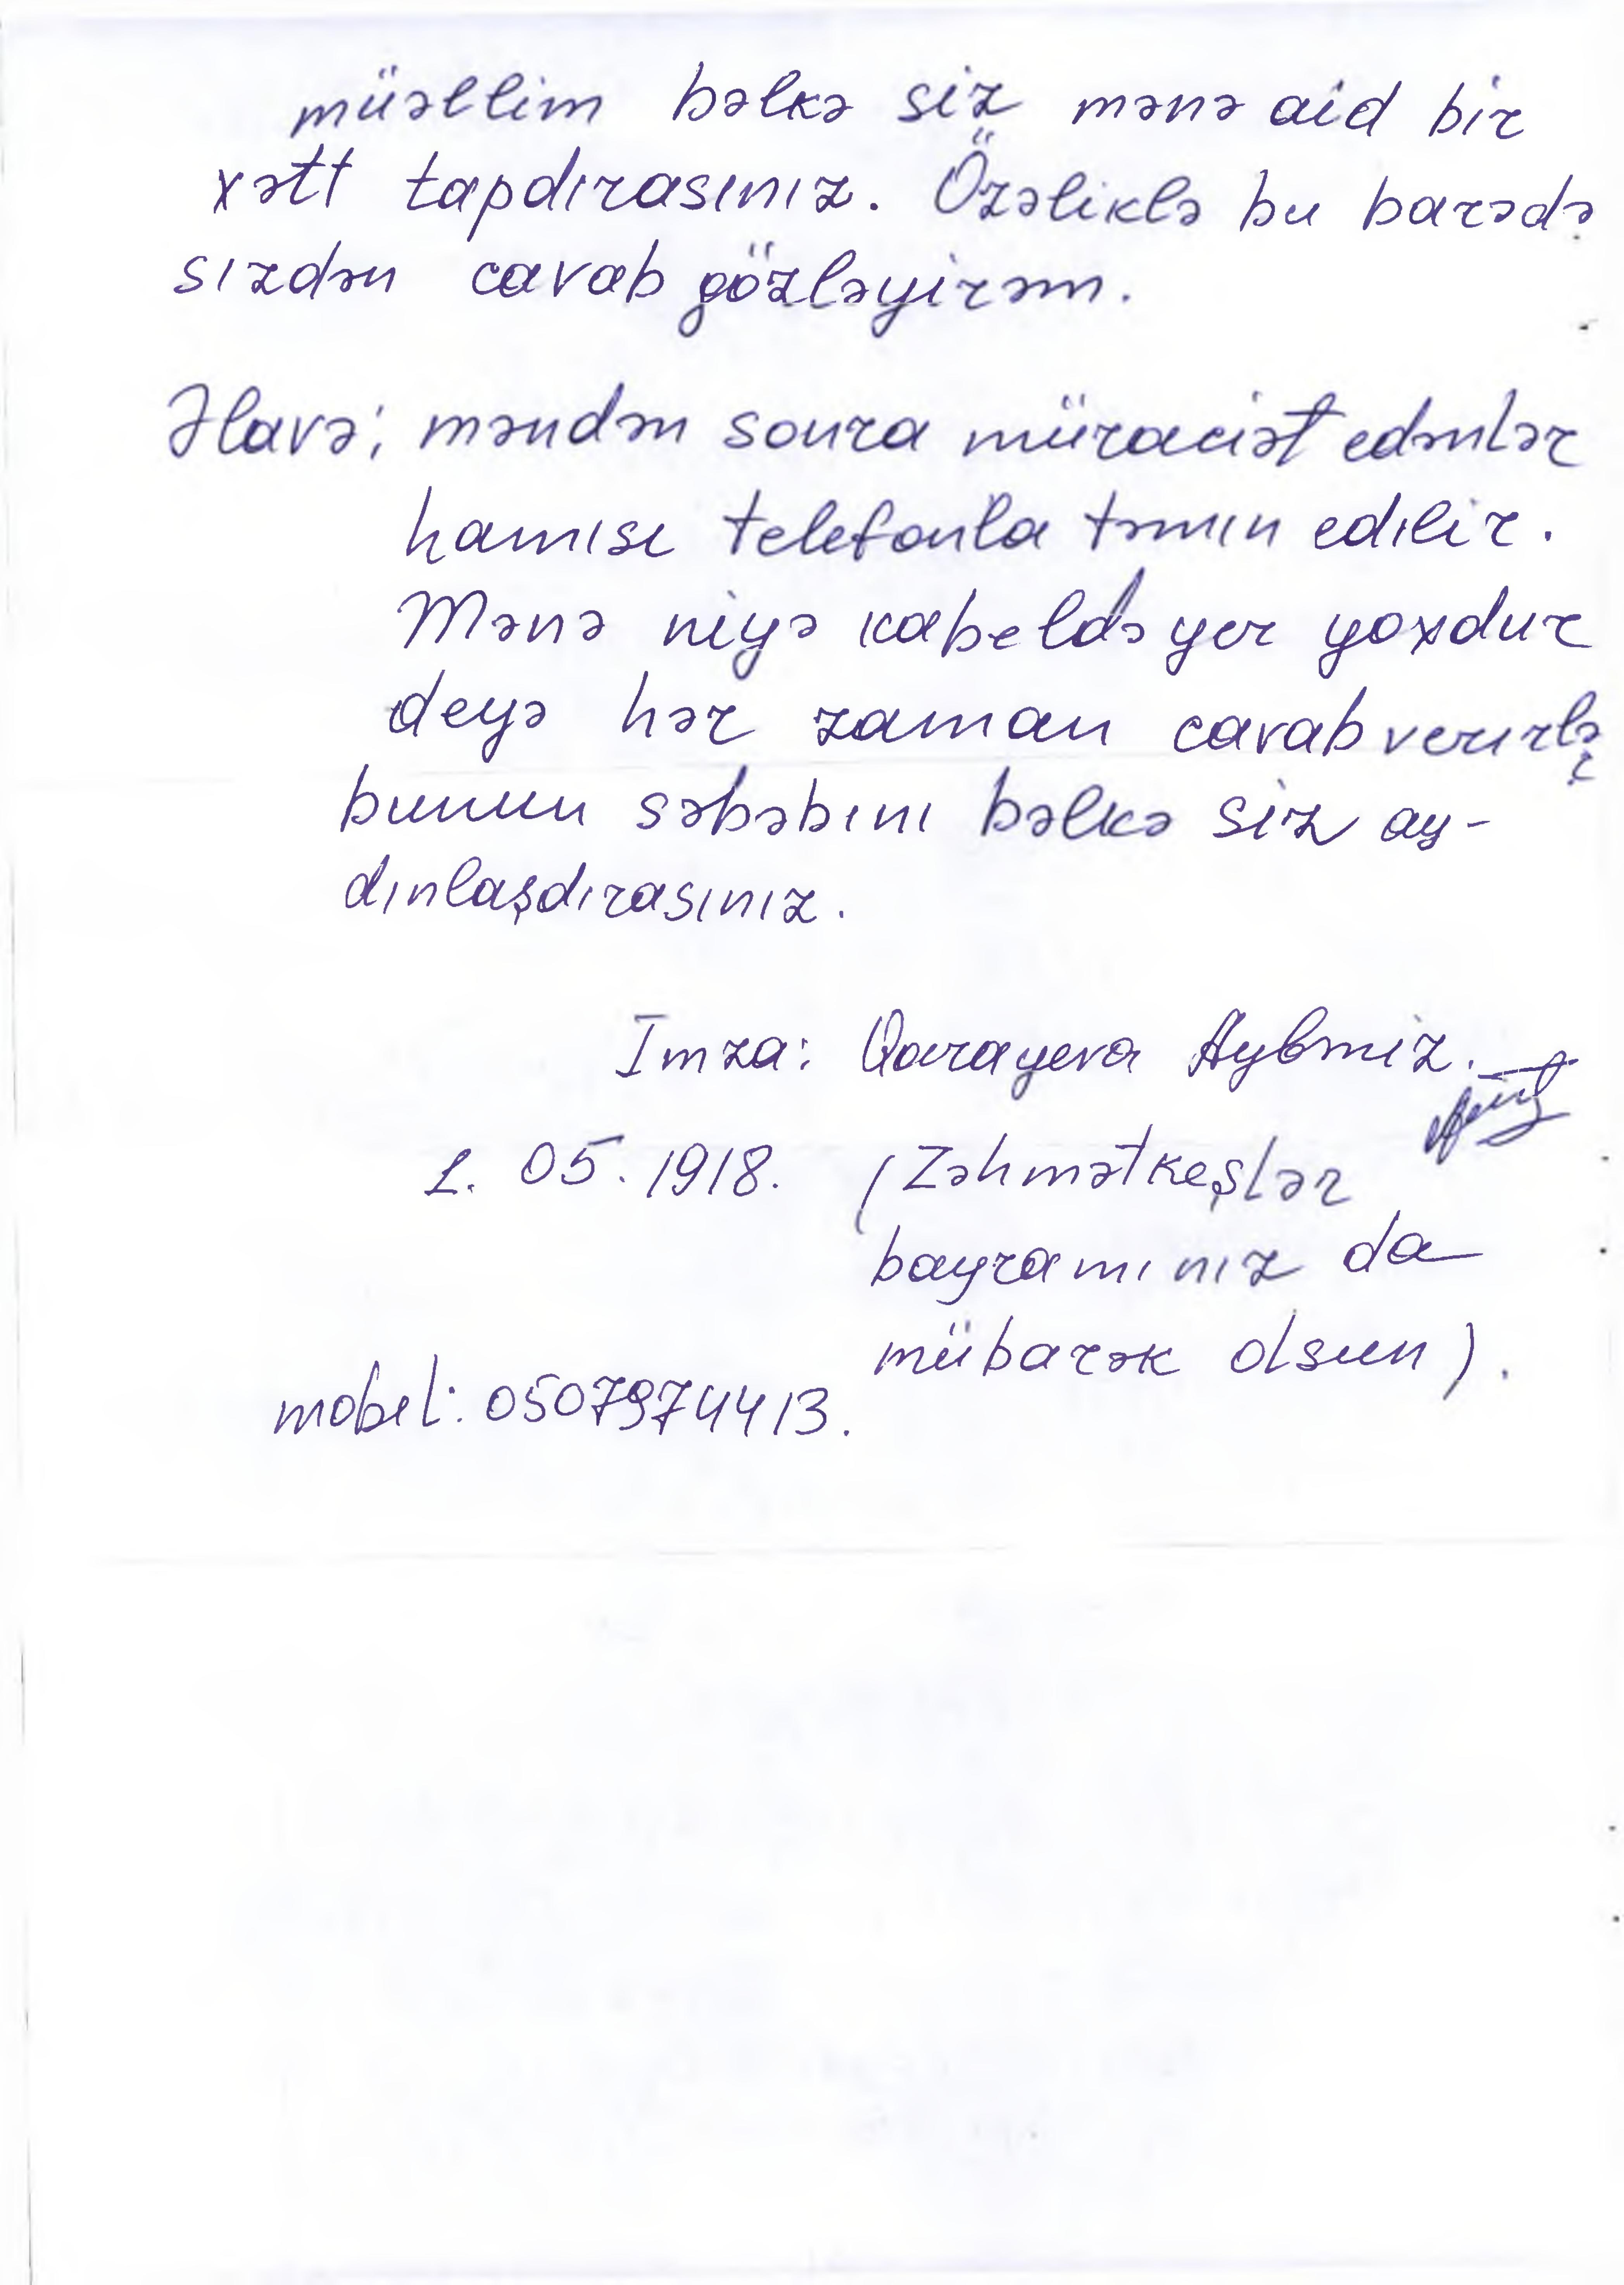 müəllim bəlkə siz mənə aid bir
xətt tapdırasınız. Özəliklə bu barədə
sızdən cavab gözləyirəm.
Əlavə; məndən sonra müraciət edənlər
hamısı telefonla təmın edılir.
Mənə niyə kabeldə yer yoxdur
deyə hər zaman cavab verırlər
bunun səbəbını bəlkə siz ay-
dınlaşdırasınız.
İmza: Qarayeva
1. 05. 1918. (Zəhmətkeşlər
bayramınız da
mübarək olsun).
mobel: 0507974413.